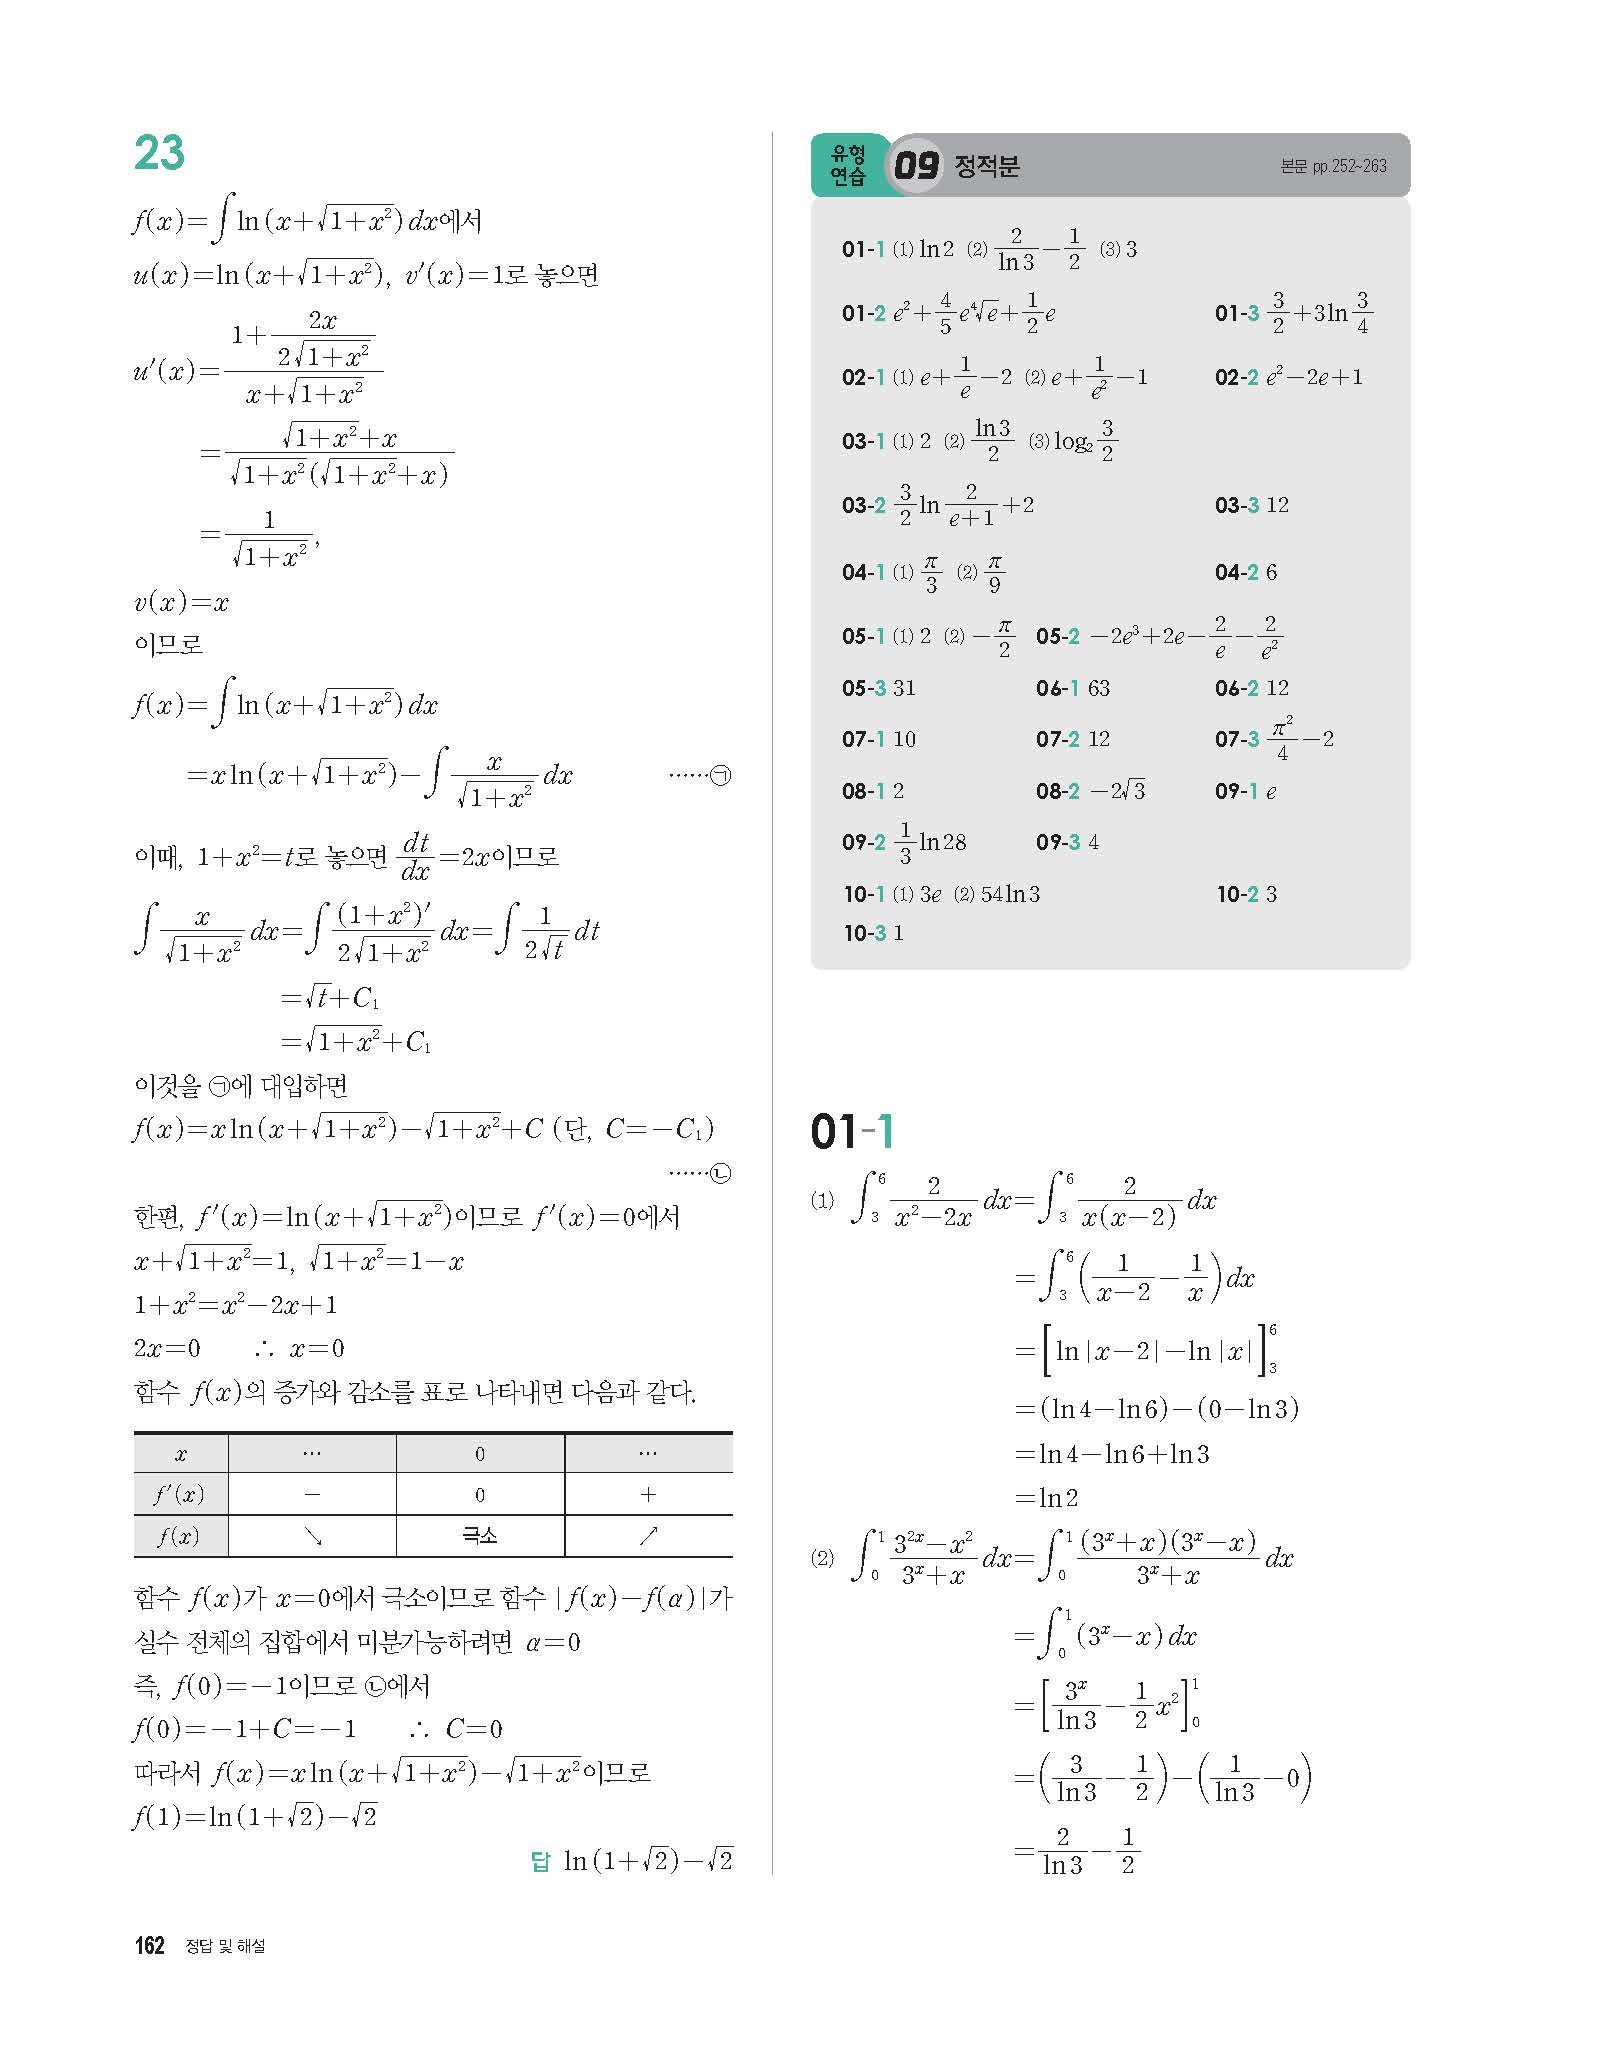 23
f(x)=∫ln(x+√(1+x²))dx에서
u(x)=ln(x+√(1+x²)), v′(x)=1로 놓으면
u′(x)=(1+2x/(2√(1+x²)))/(x+√(1+x²))
=(√(1+x²)+x)/(√(1+x²)(√(1+x²)+x))
=1/√(1+x²),
v(x)=x
이므로
f(x)=∫ln(x+√(1+x²))dx
=xln(x+√(1+x²))-∫x/√(1+x²) dx ……㉠
이때, 1+x²=t로 놓으면 dt/dx=2x이므로
∫x/√(1+x²) dx=∫(1+x²)′/(2√(1+x²)) dx=∫1/(2√t) dt
=√t+C₁
=√(1+x²)+C₁
이것을 ㉠에 대입하면
f(x)=xln(x+√(1+x²))-√(1+x²)+C (단, C=-C₁)
……㉡
한편, f′(x)=ln(x+√(1+x²))이므로 f′(x)=0에서
x+√(1+x²)=1, √(1+x²)=1-x
1+x²=x²-2x+1
2x=0 ∴ x=0
함수 f(x)의 증가와 감소를 표로 나타내면 다음과 같다.
x … 0 …
f′(x) - 0 +
f(x) ↘ 극소 ↗
함수 f(x)가 x=0에서 극소이므로 함수 |f(x)-f(α)|가
실수 전체의 집합에서 미분가능하려면 α=0
즉, f(0)=-1이므로 ㉡에서
f(0)=-1+C=-1 ∴ C=0
따라서 f(x)=xln(x+√(1+x²))-√(1+x²)이므로
f(1)=ln(1+√2)-√2
답 ln(1+√2)-√2
162 정답 및 해설
유형
연습 09 정적분 본문 pp.252~263
01-1 ⑴ ln2 ⑵ 2/ln3-1/2 ⑶ 3
01-2 e²+4/5 e⁴√e+1/2 e 01-3 3/2+3ln 3/4
02-1 ⑴ e+1/e-2 ⑵ e+1/e²-1 02-2 e²-2e+1
03-1 ⑴ 2 ⑵ ln3/2 ⑶ log₂ 3/2
03-2 3/2 ln 2/(e+1)+2 03-3 12
04-1 ⑴ π/3 ⑵ π/9 04-2 6
05-1 ⑴ 2 ⑵ -π/2 05-2 -2e³+2e-2/e-2/e²
05-3 31 06-1 63 06-2 12
07-1 10 07-2 12 07-3 π²/4-2
08-1 2 08-2 -2√3 09-1 e
09-2 1/3 ln28 09-3 4
10-1 ⑴ 3e ⑵ 54ln3 10-2 3
10-3 1
01-1
⑴ ∫₃⁶ 2/(x²-2x) dx=∫₃⁶ 2/(x(x-2)) dx
=∫₃⁶(1/(x-2)-1/x)dx
=[ln|x-2|-ln|x|]₃⁶
=(ln4-ln6)-(0-ln3)
=ln4-ln6+ln3
=ln2
⑵ ∫₀¹ (3²ˣ-x²)/(3ˣ+x) dx=∫₀¹ (3ˣ+x)(3ˣ-x)/(3ˣ+x) dx
=∫₀¹(3ˣ-x)dx
=[3ˣ/ln3-1/2 x²]₀¹
=(3/ln3-1/2)-(1/ln3-0)
=2/ln3-1/2